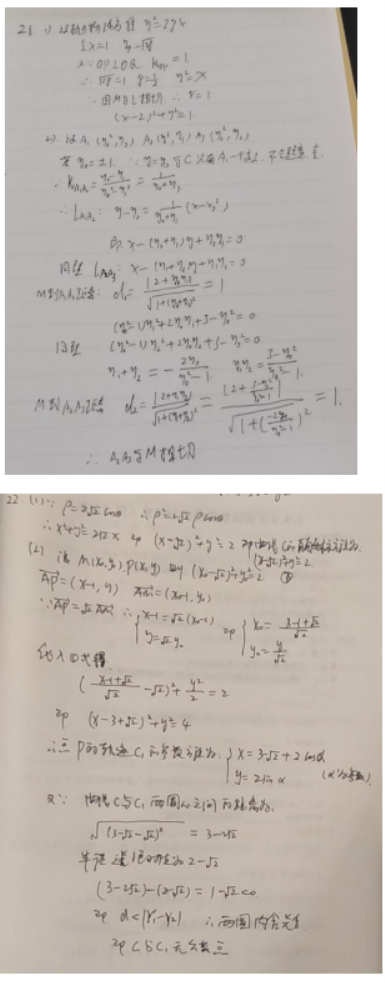 21. 1) 设抛物线方程 y²=2px
令x=1 y=√2p
∵OP⊥OQ k_OP=1.
∴√2p=1 p=1/2 y²=x
∵圆M与l相切 ∴r=1
(x-2)²+y²=1
2). 设A₁(y₀²,y₀) A₂(y₁²,y₁) A₃(y₂²,y₂)
∴k_A₁A₂=(y₀-y₁)/(y₀²-y₁²)=1/(y₀+y₁)
∴L_A₁A₂: y-y₀=1/(y₀+y₁)(x-y₀²)
即x-(y₀+y₁)y+y₀y₁=0
同理 L_A₂A₃: x-(y₁+y₂)y+y₁y₂=0
M到A₁A₂距离: d₁=|2+y₀y₁|/√(1+(y₀+y₁)²)=1
(y₀²-1)y₁²+2y₀y₁+3-y₀²=0
同理 (y₀²-1)y₂²+2y₀y₂+3-y₀²=0.
y₁+y₂=-2y₀/(y₀²-1) y₁y₂=(3-y₀²)/(y₀²-1)
M到A₂A₃距离 d₂=|2+y₁y₂|/√(1+(y₁+y₂)²)=|2+(3-y₀²)/(y₀²-1)|/√(1+(-2y₀/(y₀²-1))²)=1.
∴A₂A₃与M相切
22. (1)∵ρ=2√2cosθ ∴ρ²=2√2ρcosθ
∴x²+y²=2√2x 即(x-√2)²+y²=2 即曲线C的直角坐标方程为.
(x-√2)²+y²=2
(2) 设M(x₀,y₀) P(x,y) 则(x₀-√2)²+y₀²=2 ①
AP=(x-1,y) AM=(x₀-1,y₀)
∵AP=√2AM ∴{x-1=√2(x₀-1) y=√2y₀ 即{x₀=(x-1+√2)/√2 y₀=y/√2
代入①式得
((x-1+√2)/√2-√2)²+y²/2=2
即 (x-3+√2)²+y²=4
∴点P的轨迹C₁的参数方程为{x=3-√2+2cosα y=2sinα (α为参数)
又∵曲线C与C₁两圆心之间的距离为.
√(3-√2-√2)²=3-2√2
半径之差为2-√2
(3-2√2)-(2-√2)=1-√2<0
即 d<|r₁-r₂| ∴两圆内含关系
即C与C₁无公共点